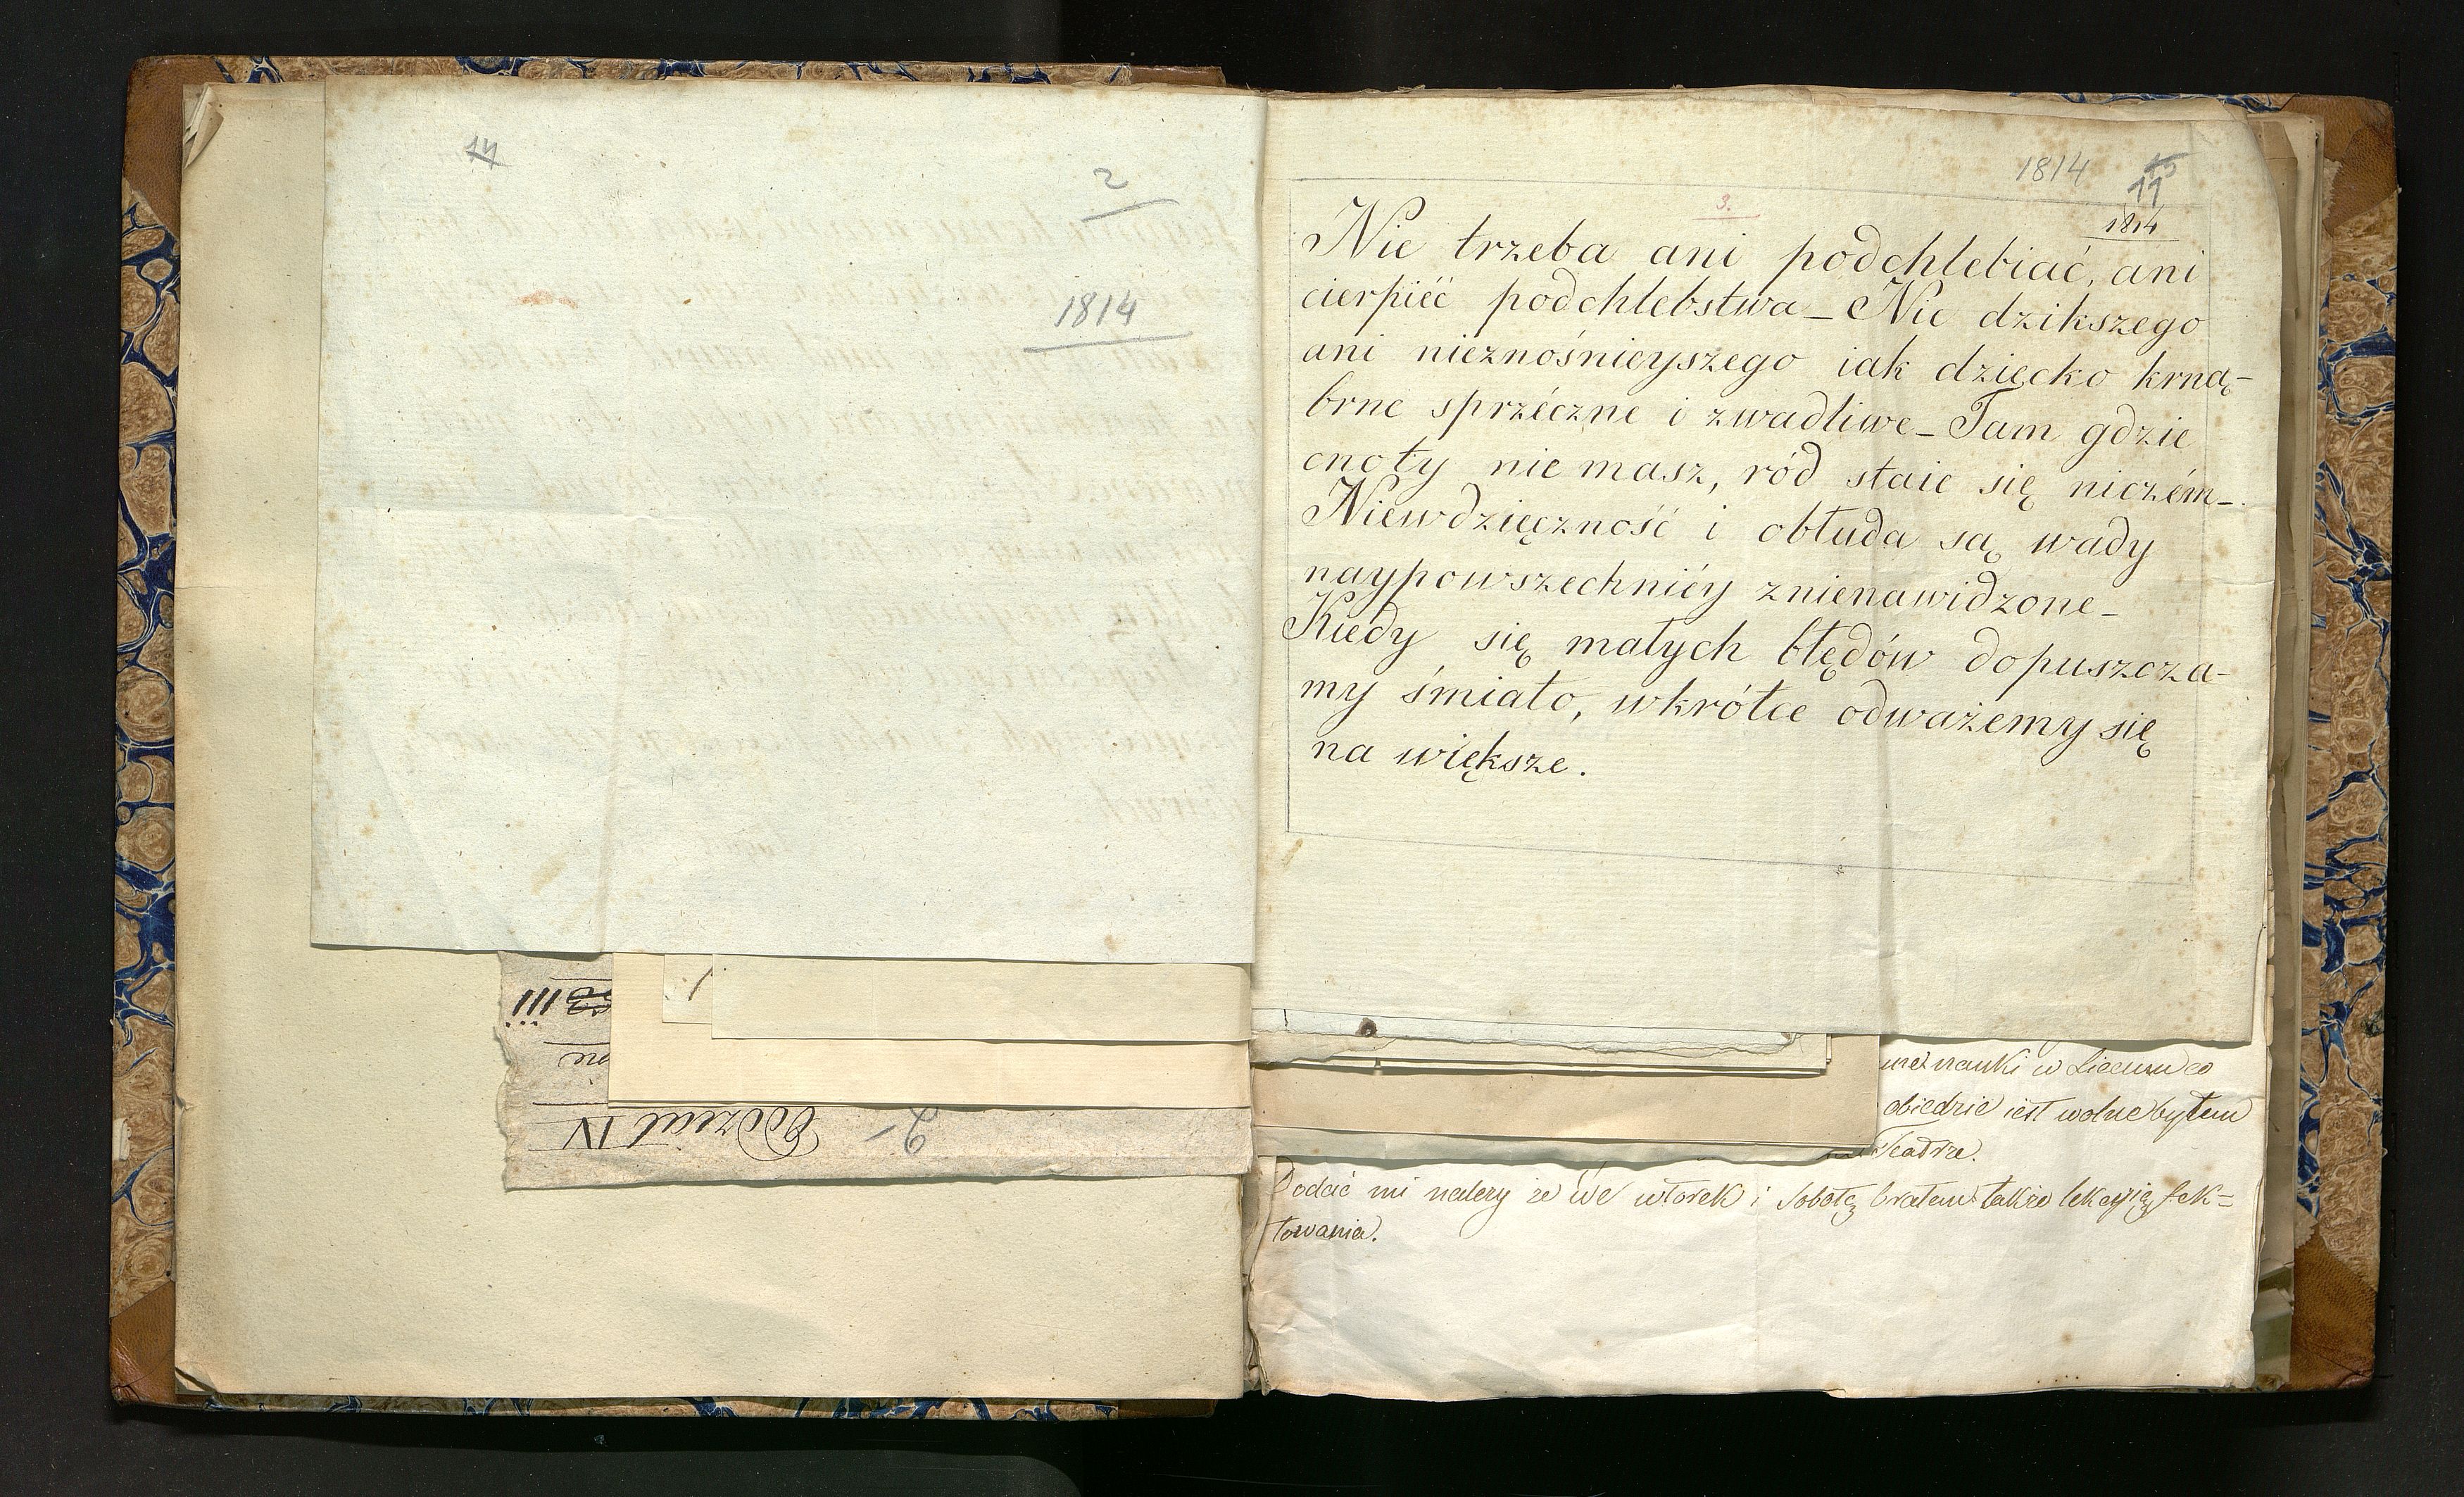 14
2
1814
1814
15
11
3.
1814
Nie trzeba ani podchlebiać, ani
cierpiéć podchlebstwa_ Nic dzikszego
ani nieznośnieyszego iak dziecko krną-
brne sprzéczne i zwadliwe_ Tam gdzie
cnoty nie masz, ród staie się niczém_
Niewdzięczność i obłuda są wady
naypowszechniéy znienawidzone_
Kiedy się małych błędów dopuszcza-
my śmiało, wkrótce odważemy się
na większe.
III
Oddział IV
2
nauki w Liceum co
obiedzie iest wolne byłem
Teatrze.
Dodać mi należy że we wtorek i Sobotę brałem także lekcyią fek=
towania.